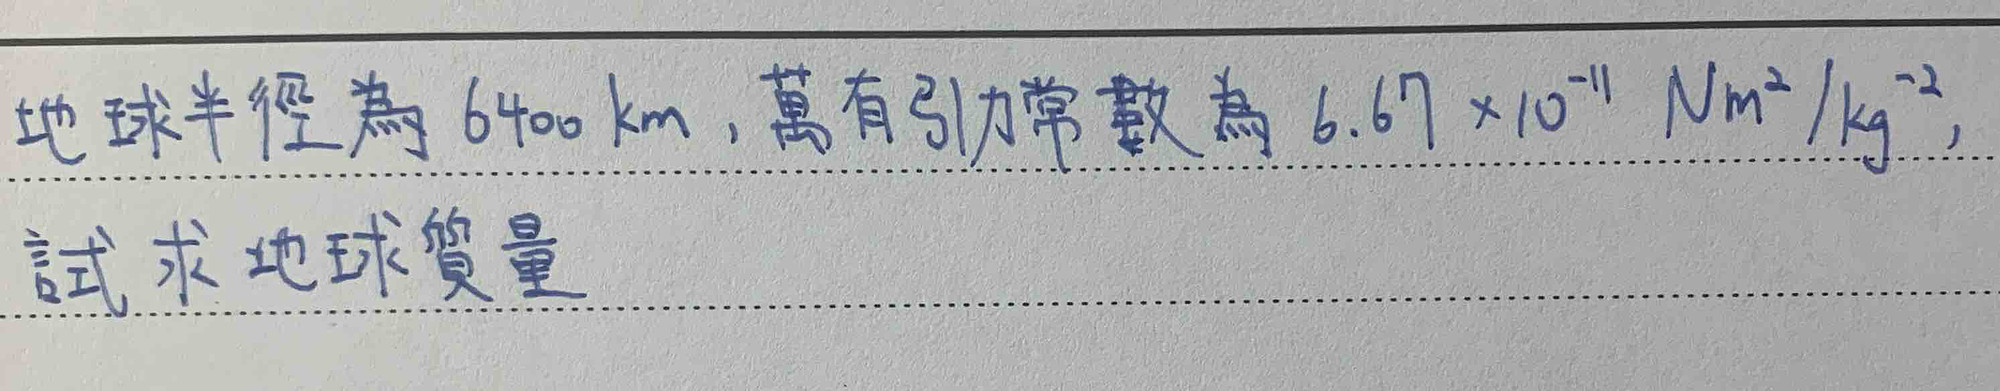 地球半徑為 6400 km，萬有引力常數為 6.67 ×10⁻¹¹ Nm²/kg⁻²，
試求地球質量